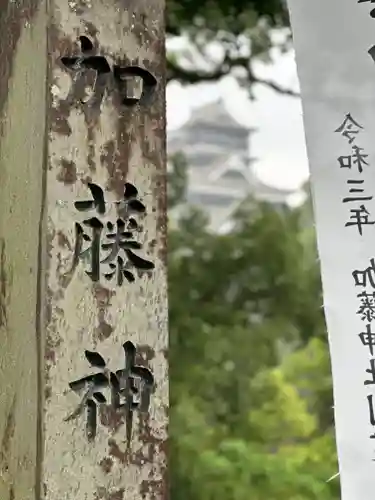 加藤神
令和三年 加藤神社